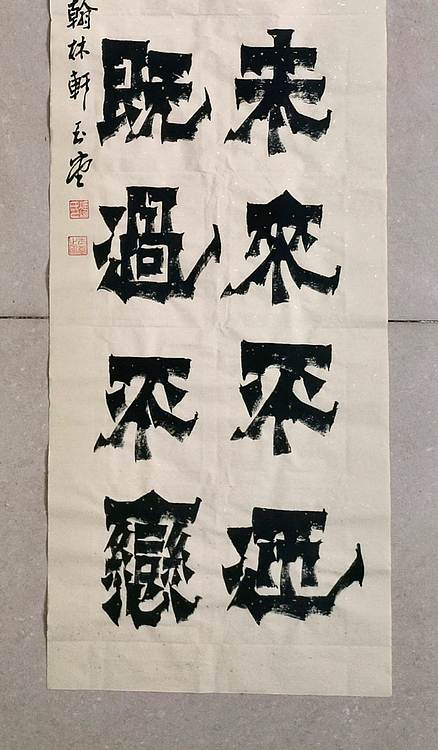 未來不迎
既過不戀
翰林軒 玉堂